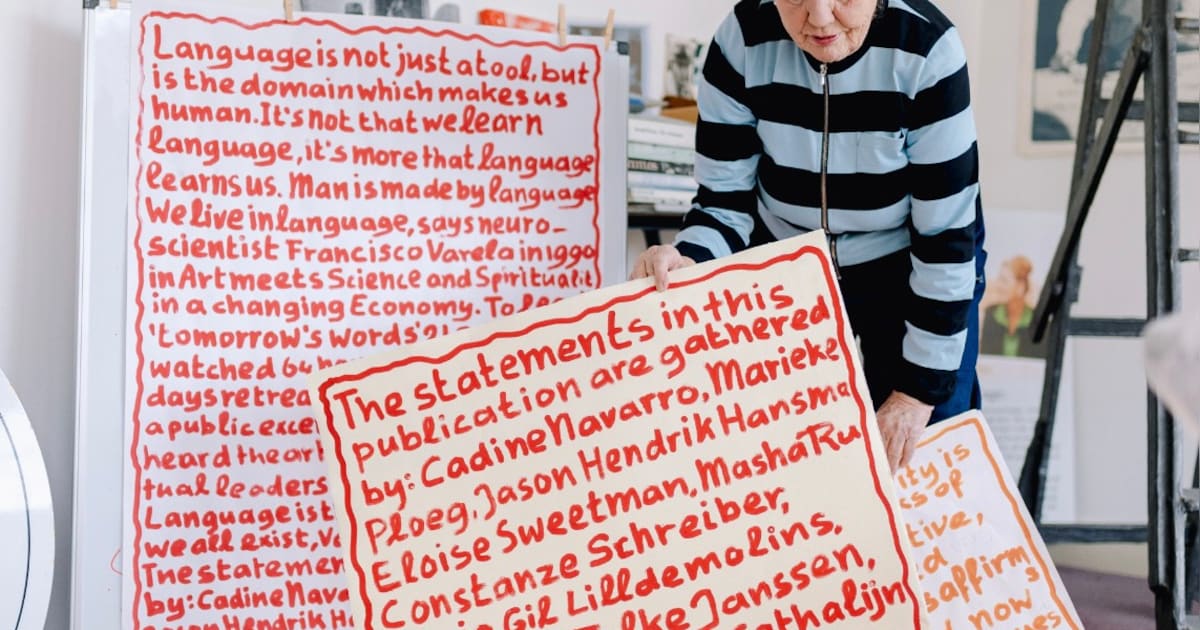 Language is not just a tool, but
is the domain which makes us
human. It's not that we learn
language, it's more that language
learns us. Man is made by language
We live in language, says neuro-
scientist Francisco Varela in 1990
in Art meets Science and Spiritualit
in a changing Economy. To
'tomorrow's words'
watched 64
days retrea
a public exce
heard the art
tual leaders
Language is t
we all exist, Va
The statemen
by: Cadine Nava
Jason Hendrik H
The statements in this
publication are gathered
by: Cadine Navarro, Marieke
Ploeg, Jason Hendrik Hansma
Eloise Sweetman, Masha Ru
Constanze Schreiber,
Gil Lilldemolins,
lke Janssen,
athalijn
ity is
s of
tive,
d
saffirm
s
now
ues